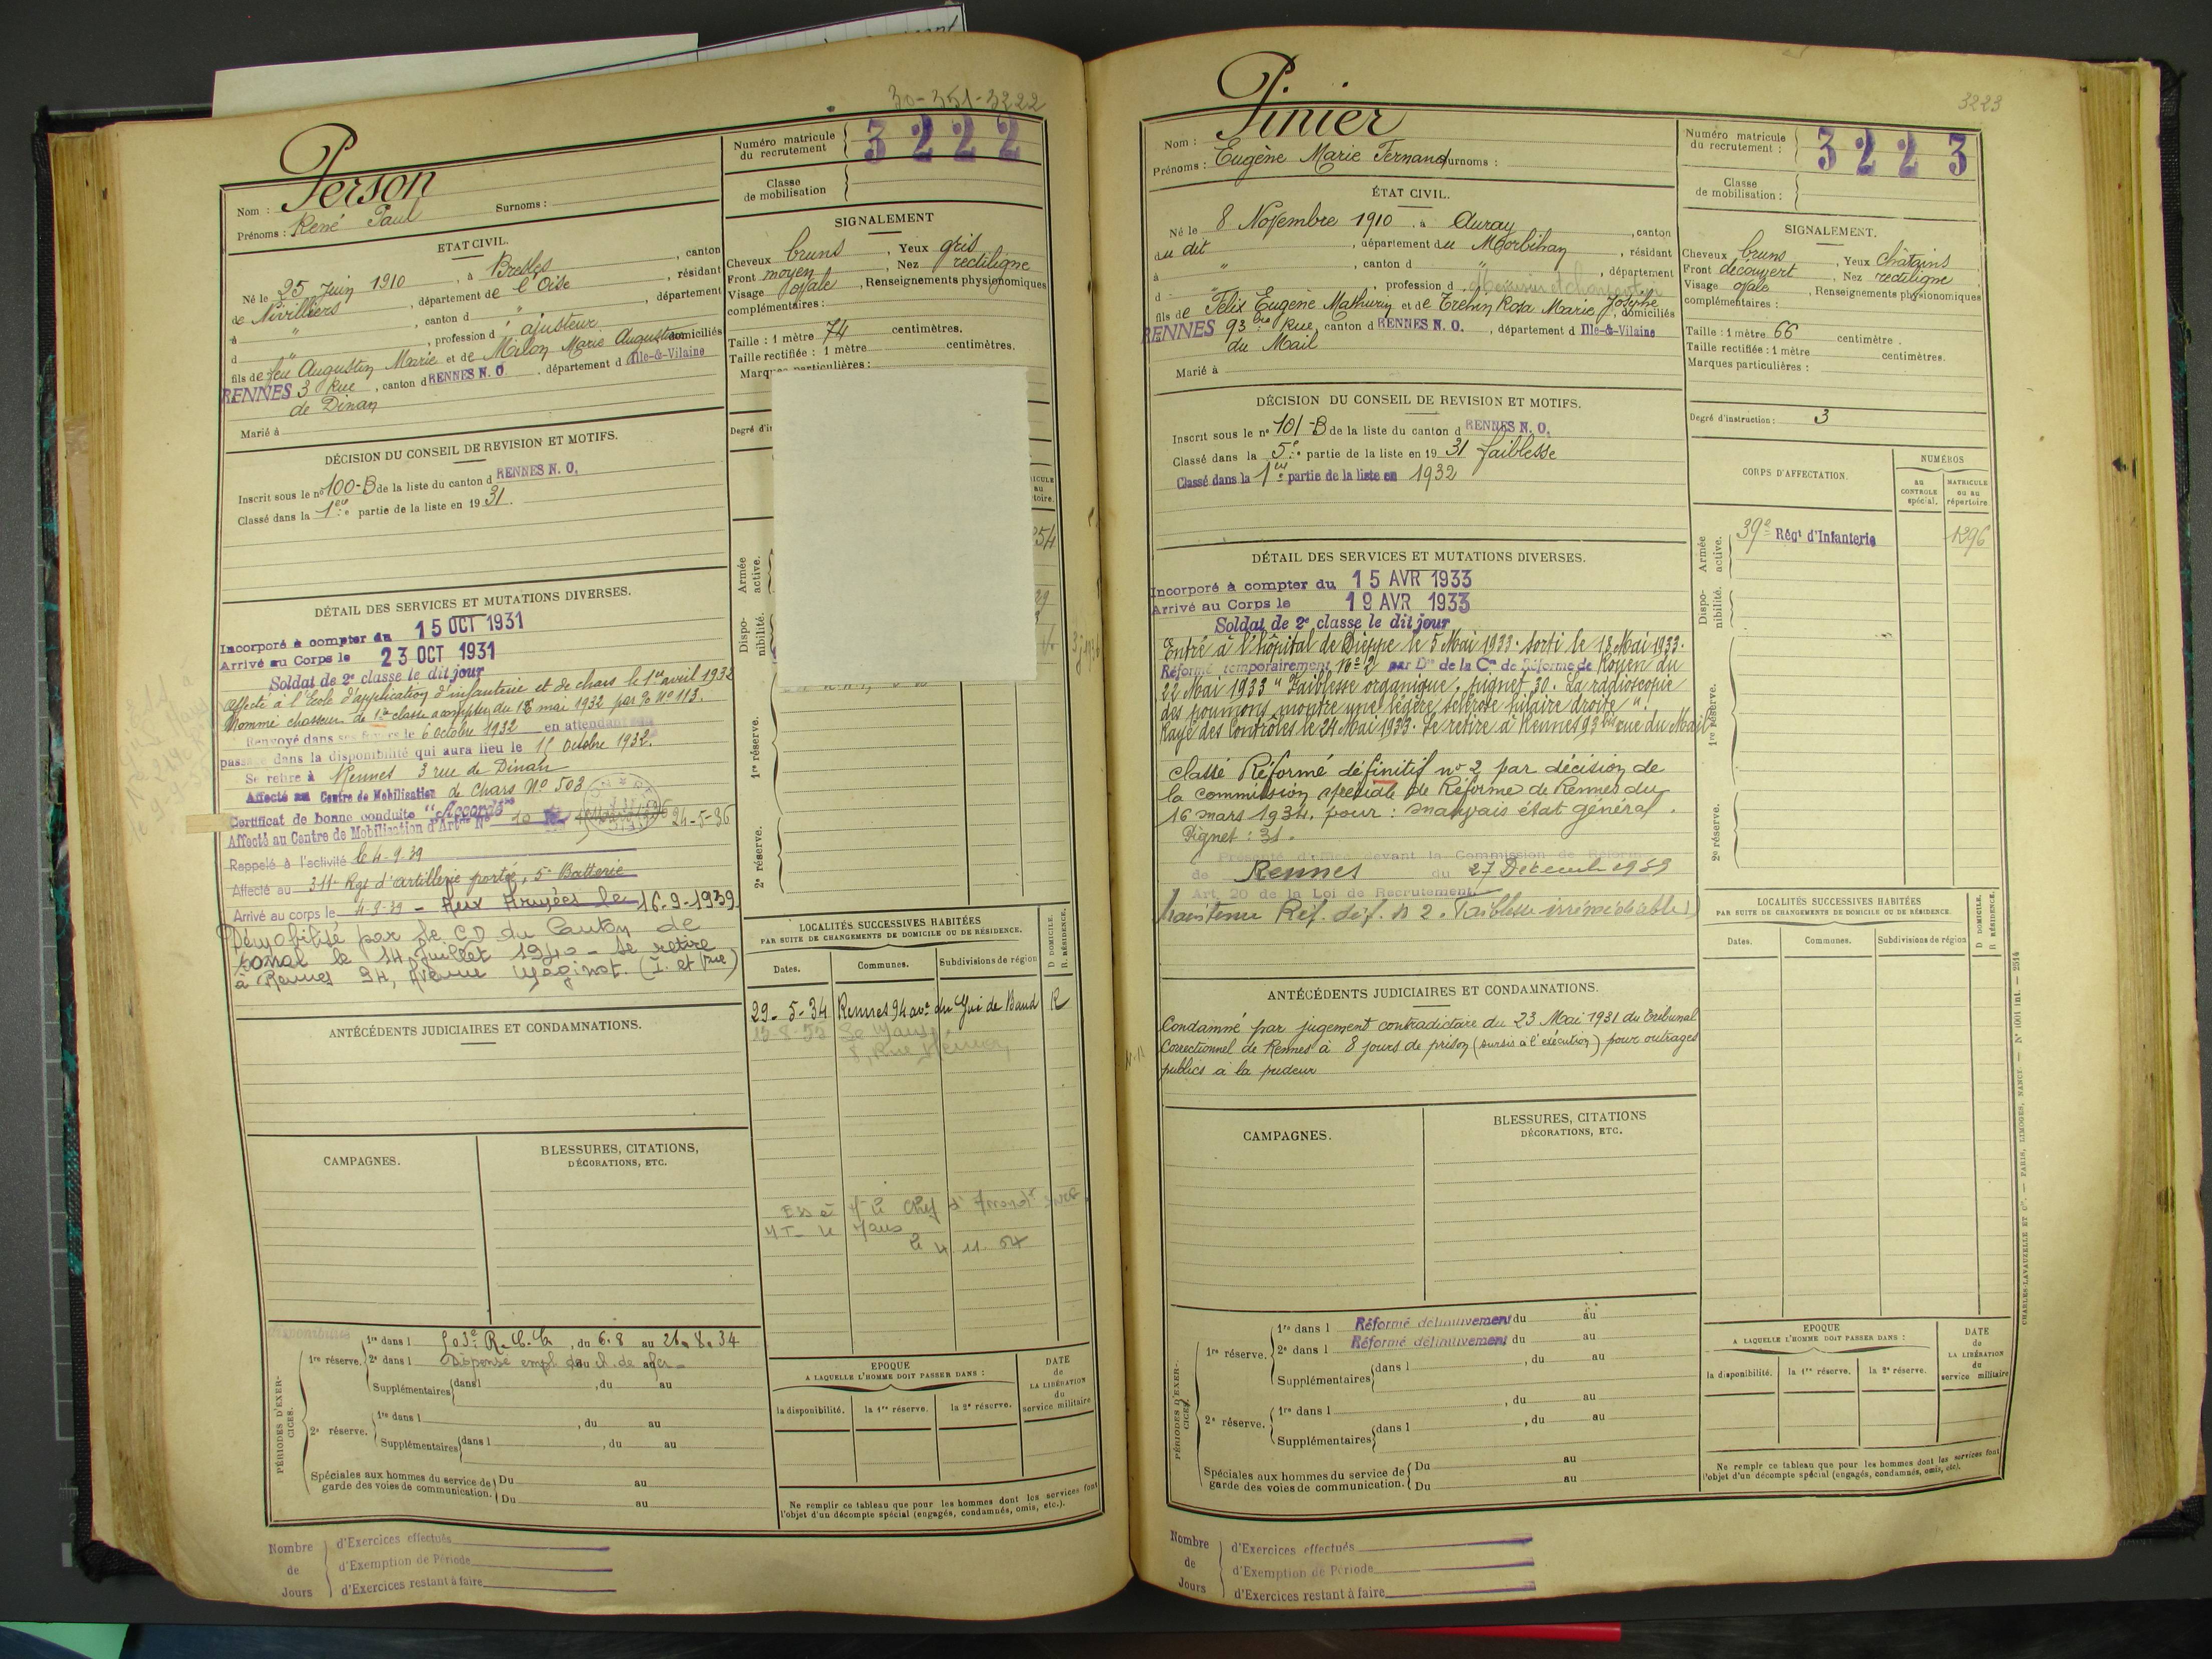 30-351-3222
Nom : Person
Prénoms : René Paul Surnoms :
Numéro matricule du recrutement 3222
Classe de mobilisation
ETAT CIVIL.
Né le 25 Juin 1910, à Bresles, canton
de Nivilliers, département de l'Oise, résidant
à " , canton d " , département
d " , profession d'ajusteur
fils de feu Augustin Marie et de Milon Marie Augustine domiciliés
RENNES 3 Rue, canton d RENNES N. O. département d Ille-&-Vilaine
de Dinan
Marié à
SIGNALEMENT
Cheveux bruns, Yeux gris
Front moyen, Nez rectiligne
Visage ovale, Renseignements physionomiques
complémentaires :
Taille : 1 mètre 74 centimètres.
Taille rectifiée : 1 mètre centimètres.
Marques particulières :
DÉCISION DU CONSEIL DE REVISION ET MOTIFS.
Inscrit sous le nº 100-B de la liste du canton d RENNES N. O.
Classé dans la 1ère partie de la liste en 1931.
DÉTAIL DES SERVICES ET MUTATIONS DIVERSES.
Incorporé à compter du 15 OCT 1931
Arrivé au Corps le 23 OCT 1931
Soldat de 2e classe le dit jour
Affecté à l'Ecole d'application d'infanterie et de chars le 1er avril 1932
Nommé chasseur de 1ère classe à compter du 18 mai 1932 par % Nº 113.
Renvoyé dans ses foyers le 6 octobre 1932 en attendant son
passage dans la disponibilité qui aura lieu le 15 octobre 1932.
Se retire à Rennes 3 rue de Dinan
Affecté au Centre de Mobilisation de chars Nº 503
Certificat de bonne conduite "Accordé"
Affecté au Centre de Mobilisation d'Artie Nº 10 24-5-36
Rappelé à l'activité le 4-9-39
Affecté au 311e Rgt d'artillerie portée, 5e Batterie
Arrivé au corps le 4-9-39 - Aux Armées le 16-9-1939
Démobilisé par le C D du Canton de
le 14 Juillet 1940 - Se retire
à Rennes 94, Avenue
ANTÉCÉDENTS JUDICIAIRES ET CONDAMNATIONS.
CAMPAGNES.
BLESSURES, CITATIONS,
DÉCORATIONS, ETC.
Armée active.
Disponibilité.
1re réserve.
2e réserve.
LOCALITÉS SUCCESSIVES HABITÉES
PAR SUITE DE CHANGEMENTS DE DOMICILE OU DE RÉSIDENCE.
D. DOMICILE. R. RÉSIDENCE.
Dates. Communes. Subdivisions de région
29-5-34 Rennes 94 ave du Gui de Baud R
le 4 11 54
PÉRIODES D'EXERCICES.
1re réserve. 1re dans l 503e R.C.C., du 6.8 au 26.8.34
2e dans l Dispensé empl au ch. de fer
Supplémentaires dans l , du au
2e réserve. 1re dans l , du au
Supplémentaires dans l , du au
Spéciales aux hommes du service de garde des voies de communication. Du au
Du au
EPOQUE
A LAQUELLE L'HOMME DOIT PASSER DANS :
la disponibilité. la 1re réserve. la 2e réserve.
DATE de LA LIBÉRATION du service militaire
Ne remplir ce tableau que pour les hommes dont les services font
l'objet d'un décompte spécial (engagés, condamnés, omis, etc.).
Nombre de Jours
d'Exercices effectués
d'Exemption de Période
d'Exercices restant à faire
3223
Nom : Pinier
Prénoms : Eugène Marie Fernand Surnoms :
Numéro matricule du recrutement : 3223
Classe de mobilisation :
ÉTAT CIVIL.
Né le 8 Novembre 1910, à Auray, canton
du dit, département du Morbihan, résidant
à " , canton d " , département
d " , profession d Menuisier et charpentier
fils de Félix Eugène Mathurin et de Trehin Rosa Marie Josèphe, domiciliés
RENNES 93 bis Rue, canton d RENNES N. O., département d Ille-&-Vilaine
du Mail
Marié à
SIGNALEMENT.
Cheveux bruns, Yeux châtains
Front découvert, Nez rectiligne
Visage ovale, Renseignements physionomiques
complémentaires :
Taille : 1 mètre 66 centimètre.
Taille rectifiée : 1 mètre centimètres.
Marques particulières :
Degré d'instruction : 3
DÉCISION DU CONSEIL DE REVISION ET MOTIFS.
Inscrit sous le nº 101-B de la liste du canton d RENNES N. O.
Classé dans la 5e partie de la liste en 1931 faiblesse
Classé dans la 1ère partie de la liste en 1932
CORPS D'AFFECTATION.
NUMÉROS
au CONTROLE spécial.
MATRICULE ou au répertoire
Armée active. 39e Régt d'Infanterie 1296
Disponibilité.
1re réserve.
2e réserve.
DÉTAIL DES SERVICES ET MUTATIONS DIVERSES.
Incorporé à compter du 15 AVR 1933
Arrivé au Corps le 19 AVR 1933
Soldat de 2e classe le dit jour
Entré à l'hôpital de Dieppe le 5 Mai 1933. Sorti le 13 Mai 1933.
Réformé temporairement Nº 2 par Don de la Con de Réforme de Rouen du
22 Mai 1933 "Faiblesse organique. pignet 30. La radioscopie
des poumons montre une légère sclérose hilaire droite".
Rayé des Contrôles le 24 Mai 1933. Se retire à Rennes 93 bis rue du Mail
Classé Réformé définitif nº 2 par décision de
la commission spéciale de Réforme de Rennes du
16 mars 1934. pour : mauvais état général.
Pignet : 31.
Présenté d'office devant la Commission de Réforme
de Rennes du 27 Décembre 1939
Art. 20 de la Loi de Recrutement
Maintenu Réf. déf. n 2. Faiblesse irrémédiable
ANTÉCÉDENTS JUDICIAIRES ET CONDAMNATIONS.
Condamné par jugement contradictoire du 23 Mai 1931 du Tribunal
Correctionnel de Rennes à 8 jours de prison (sursis à l'exécution) pour outrages
publics à la pudeur
CAMPAGNES.
BLESSURES, CITATIONS
DÉCORATIONS, ETC.
LOCALITÉS SUCCESSIVES HABITÉES
PAR SUITE DE CHANGEMENTS DE DOMICILE OU DE RÉSIDENCE.
D DOMICILE. R RÉSIDENCE.
Dates. Communes. Subdivisions de région
PÉRIODES D'EXERCICES.
1re réserve. 1re dans l Réformé définitivement du au
2e dans l Réformé définitivement du au
Supplémentaires dans l , du au
2e réserve. 1re dans l , du au
Supplémentaires dans l , du au
Spéciales aux hommes du service de garde des voies de communication. Du au
Du au
EPOQUE
A LAQUELLE L'HOMME DOIT PASSER DANS :
la disponibilité. la 1re réserve. la 2e réserve.
DATE de LA LIBÉRATION du service militaire
Ne remplir ce tableau que pour les hommes dont les services font
l'objet d'un décompte spécial (engagés, condamnés, omis, etc).
CHARLES-LAVAUZELLE ET Cie. — PARIS, LIMOGES, NANCY. — Nº 1001 int. — 2514
Nombre de Jours
d'Exercices effectués
d'Exemption de Période
d'Exercices restant à faire